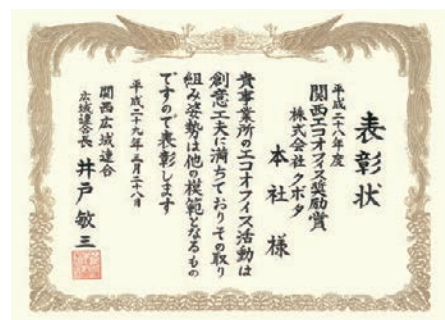 表彰状
平成二十八年度
関西エコオフィス奨励賞
株式会社クボタ
本社様
貴事業所のエコオフィス活動は
創意工夫に満ちておりその取り
組み姿勢は他の模範となるもの
ですので表彰します
平成二十九年三月二十八日
関西広域連合
広域連合長 井戸敏三